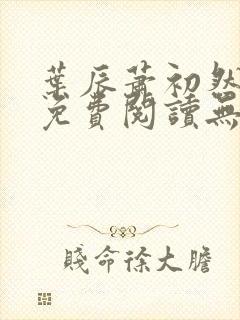 葉辰蕭初然
免費閱讀無
賤命徐大膽